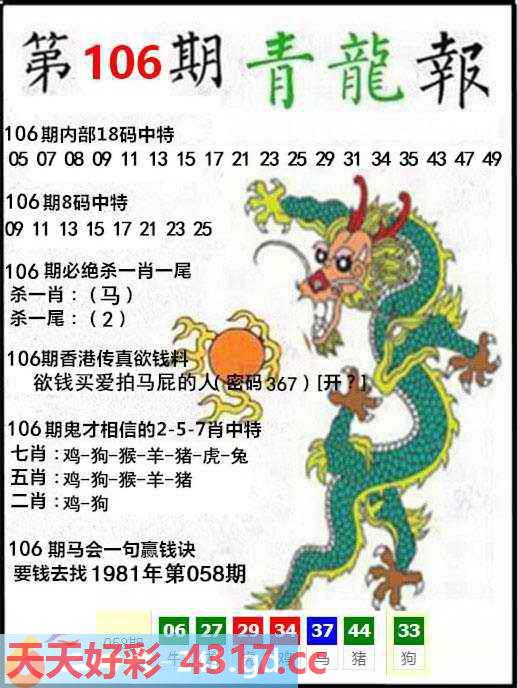 第106期 青龍報
106期内部18码中特
05 07 08 09 11 13 15 17 21 23 25 29 31 34 35 43 47 49
106期8码中特
09 11 13 15 17 21 23 25
106期必绝杀一肖一尾
杀一肖：（马）
杀一尾：（2）
106期香港传真欲钱料
欲钱买爱拍马屁的人（密码367）[开？]
106期鬼才相信的2-5-7肖中特
七肖：鸡-狗-猴-羊-猪-虎-兔
五肖：鸡-狗-猴-羊-猪
二肖：鸡-狗
106期马会一句赢钱诀
要钱去找1981年第058期
058期 06 27 29 34 37 44 33
牛 鸡 马 猪 狗
天天好彩 4317.cc